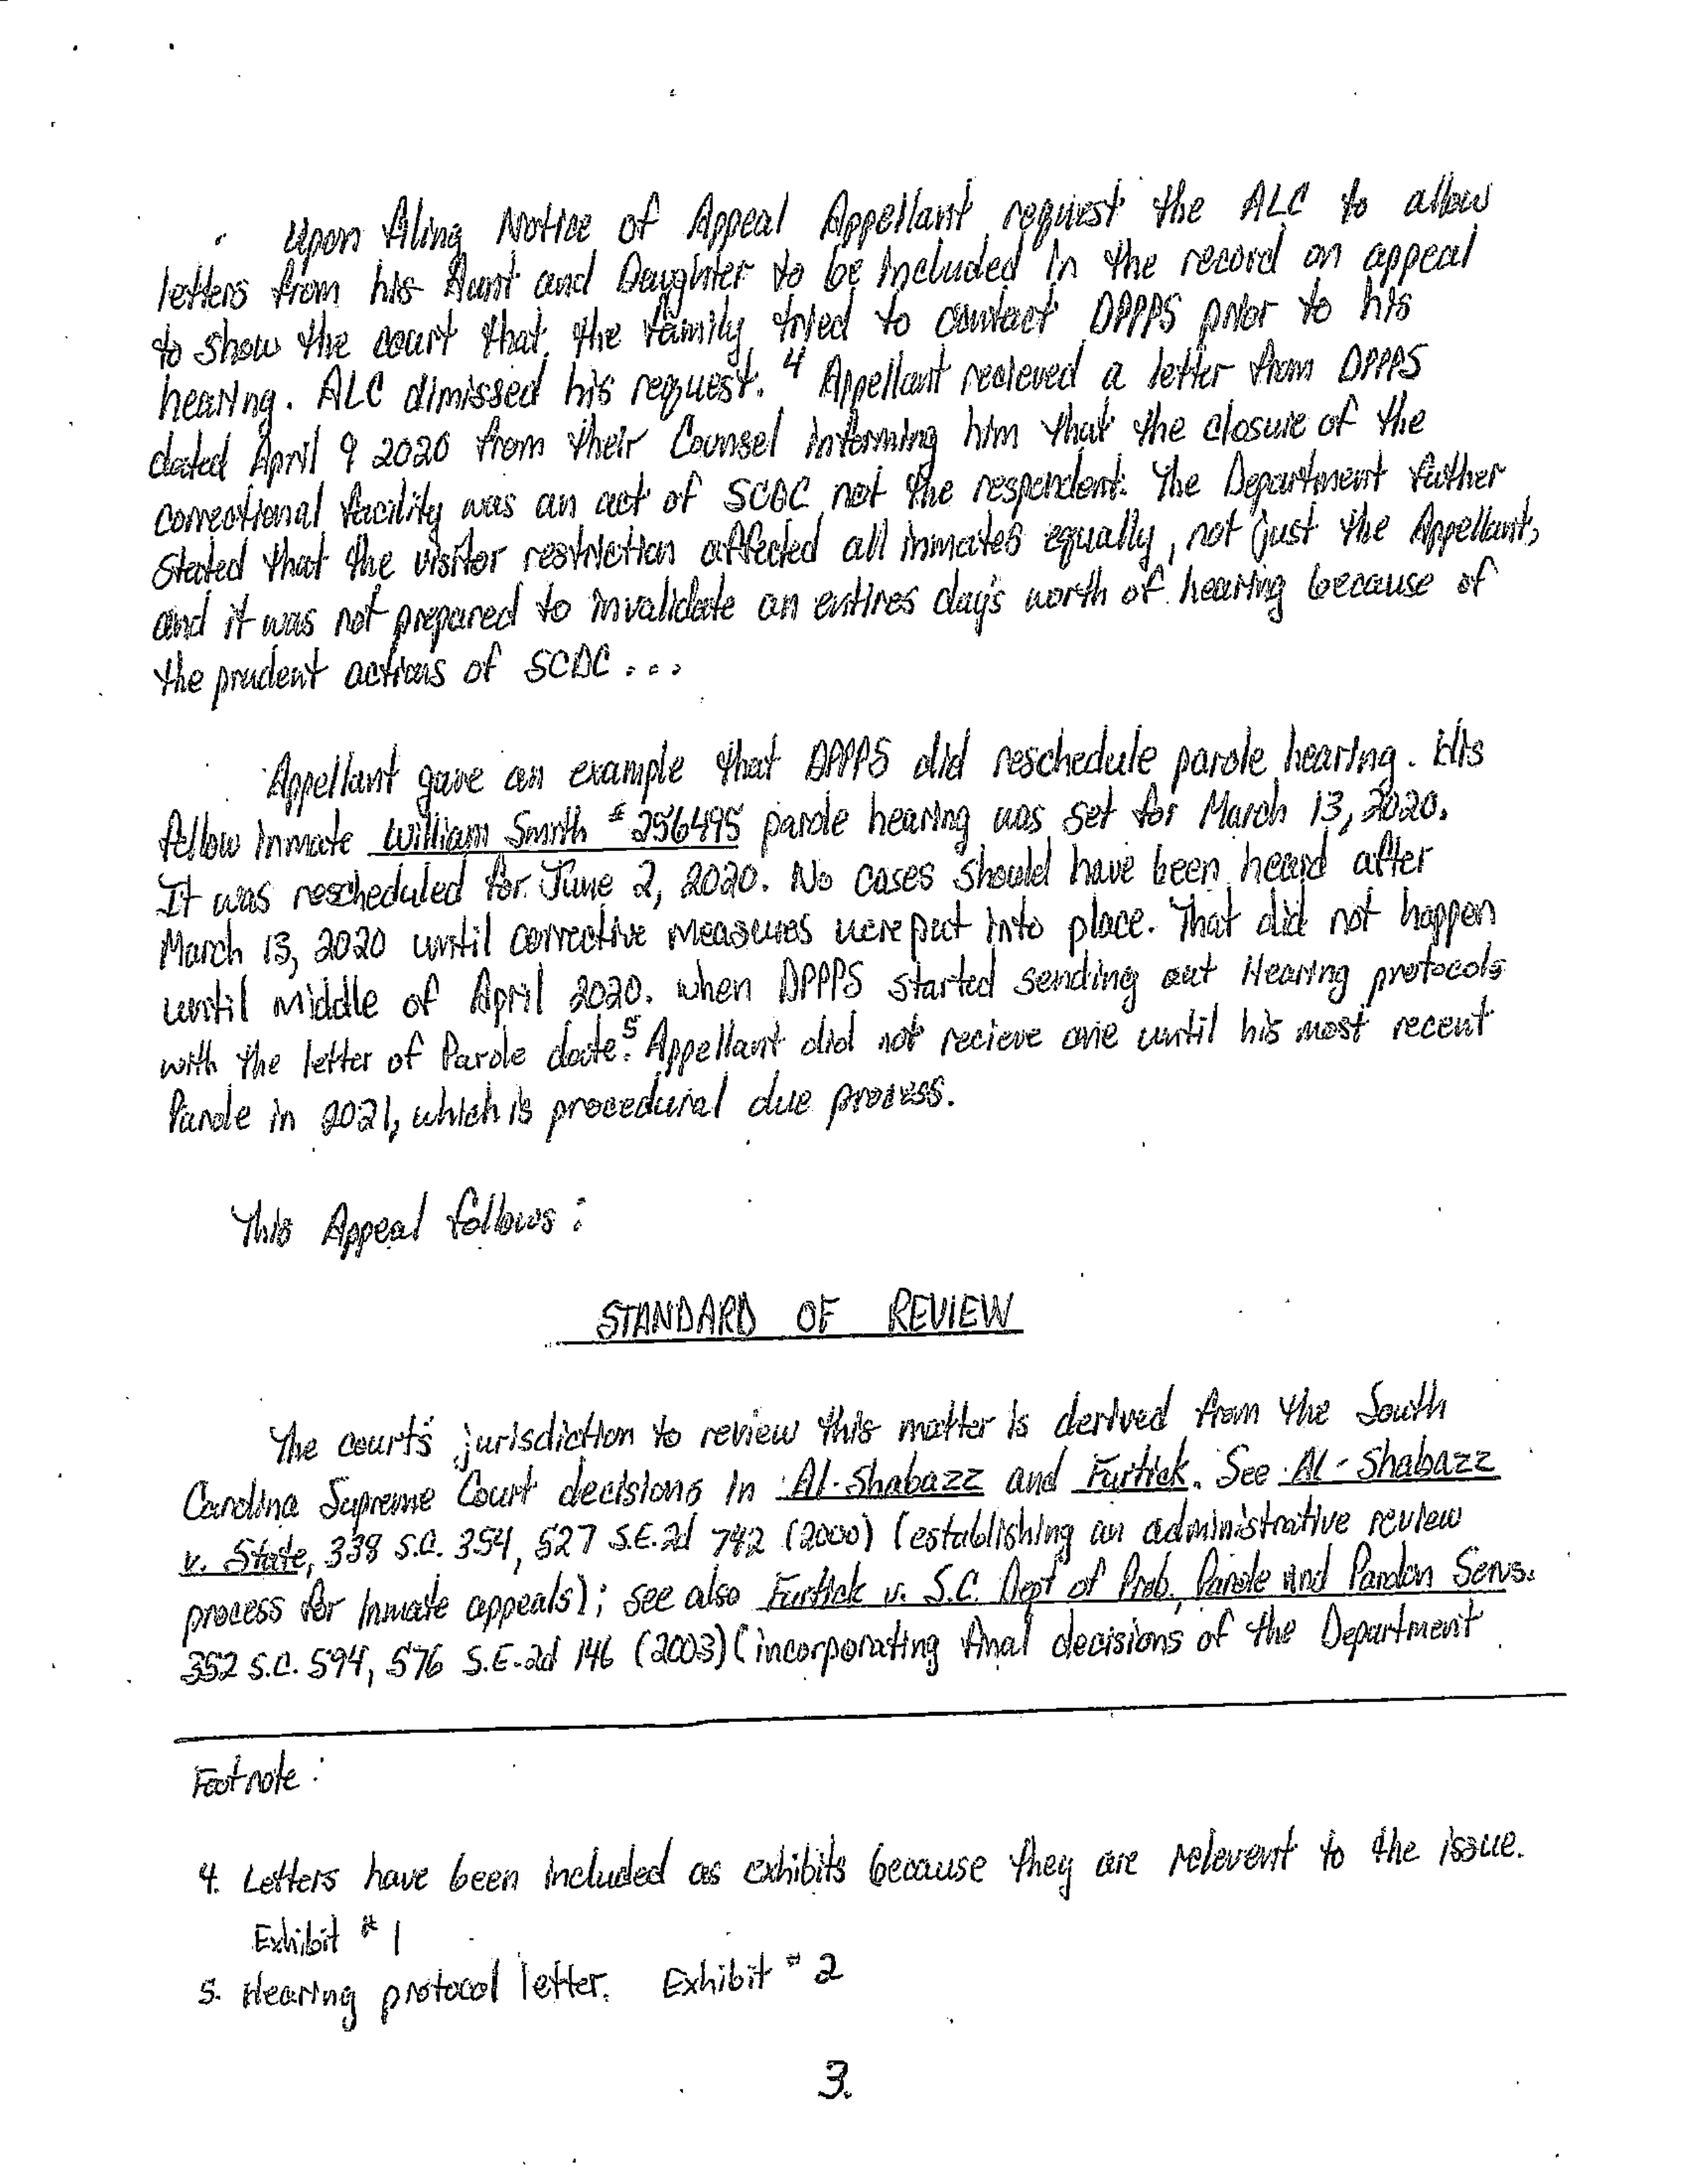 Upon filing Notice of Appeal Appellant request the ALC to allow
letters from his Aunt and Daughter to be included in the record on appeal
to show the court that the family tried to contact DPPPS prior to his
hearing. ALC dimissed his request.4 Appellant recieved a letter from DPPPS
dated April 9 2020 from their Counsel informing him that the closure of the
correctional facility was an act of SCDC not the respondent. The Department futher
stated that the visitor restriction affected all inmates equally, not just the Appellant,
and it was not prepared to invalidate an entires day's worth of hearing because of
the prudent actions of SCDC...
Appellant gave an example that DPPPS did reschedule parole hearing. His
fellow inmate William Smith #256495 parole hearing was set for March 13, 2020.
It was rescheduled for June 2, 2020. No cases should have been heard after
March 13, 2020 until corrective measures were put into place. That did not happen
until middle of April 2020. when DPPPS started sending out Hearing protocols
with the letter of Parole date.5 Appellant did not recieve one until his most recent
Parole in 2021, which is procedural due process.
This Appeal follows:
STANDARD OF REVIEW
The court's jurisdiction to review this matter is derived from the South
Carolina Supreme Court decisions in Al-Shabazz and Furtick. See Al-Shabazz
v. State, 338 S.C. 354, 527 S.E.2d 742 (2000) (establishing an administrative review
process for inmate appeals); see also Furtick v. S.C. Dept of Prob., Parole and Pardon Servs.
352 S.C. 594, 576 S.E.2d 146 (2003) (incorporating final decisions of the Department
Footnote:
4. Letters have been included as exhibits because they are relevent to the issue.
Exhibit #1
5. Hearing protocol letter. Exhibit #2
3.